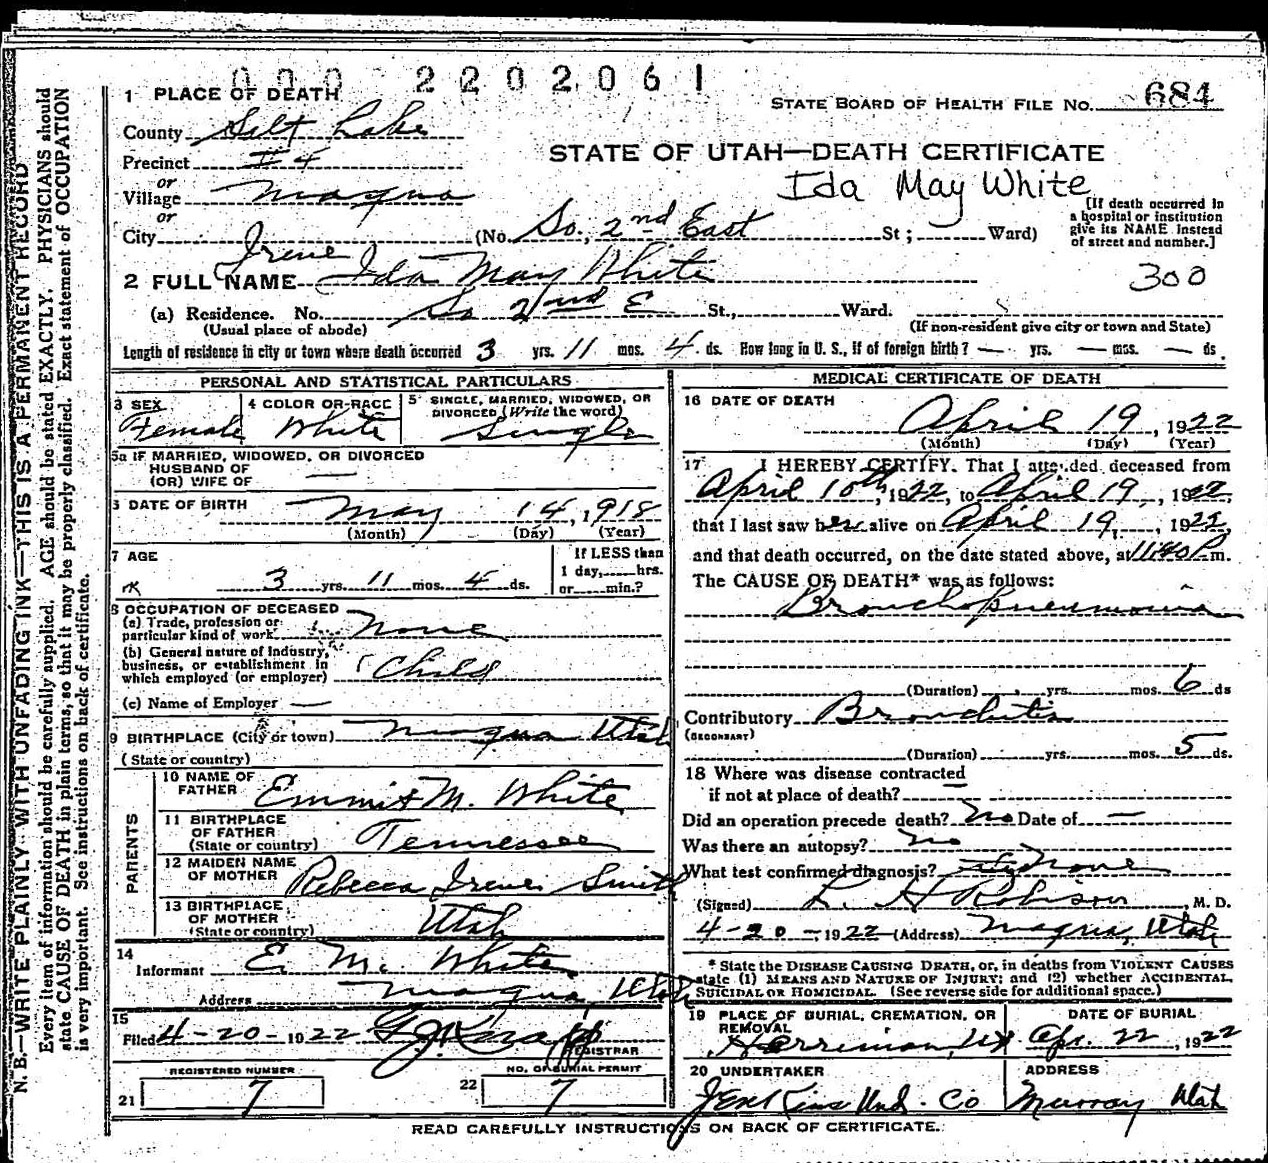 000 2202061
1 PLACE OF DEATH
STATE BOARD OF HEALTH FILE NO. 684
County Salt Lake
Precinct #4
STATE OF UTAH—DEATH CERTIFICATE
or
Village Magna
Ida May White
or
City (No. So. 2nd East St; Ward)
[If death occurred in a hospital or institution give its NAME instead of street and number.]
Irene
2 FULL NAME Ida May White
300
(a) Residence. No. So 2nd E St., Ward.
(Usual place of abode) (If non-resident give city or town and State)
Length of residence in city or town where death occurred 3 yrs. 11 mos. 4 ds. How long in U. S., if of foreign birth? — yrs. — mos. — ds
PERSONAL AND STATISTICAL PARTICULARS
3 SEX Female
4 COLOR OR RACE White
5 SINGLE, MARRIED, WIDOWED, OR DIVORCED (Write the word) Single
5a IF MARRIED, WIDOWED, OR DIVORCED
HUSBAND OF
(OR) WIFE OF —
DATE OF BIRTH May 14, 1918
(Month) (Day) (Year)
7 AGE
3 yrs. 11 mos. 4 ds.
If LESS than
1 day, hrs.
or min.?
8 OCCUPATION OF DECEASED
(a) Trade, profession or particular kind of work None
(b) General nature of Industry, business, or establishment in which employed (or employer) Child
(c) Name of Employer —
9 BIRTHPLACE (City or town) Magna Utah
(State or country)
PARENTS
10 NAME OF FATHER Emmit M. White
11 BIRTHPLACE OF FATHER (State or country) Tennessee
12 MAIDEN NAME OF MOTHER Rebecca Irene Smith
13 BIRTHPLACE OF MOTHER (State or country) Utah
14
Informant E. M. White
Address Magna, Utah
15
Filed 4-20-1922
REGISTRAR
REGISTERED NUMBER
21 7
NO. OF BURIAL PERMIT
22 7
MEDICAL CERTIFICATE OF DEATH
16 DATE OF DEATH
April 19, 1922
(Month) (Day) (Year)
17 I HEREBY CERTIFY. That I attended deceased from
April 10th, 1922, to April 19, 1922,
that I last saw her alive on April 19, 1922,
and that death occurred, on the date stated above, at 11:40 P m.
The CAUSE OF DEATH* was as follows:
Bronchopneumonia
(Duration) yrs. mos. 6 ds
Contributory Bronchitis
(SECONDARY)
(Duration) yrs. mos. 5 ds.
18 Where was disease contracted
if not at place of death? —
Did an operation precede death? No Date of —
Was there an autopsy? No
What test confirmed diagnosis? None
(Signed) L. H Robison, M. D.
4-20-, 1922 (Address) Magna, Utah
* State the DISEASE CAUSING DEATH, or, in deaths from VIOLENT CAUSES
state (1) MEANS AND NATURE OF INJURY; and (2) whether ACCIDENTAL,
SUICIDAL OR HOMICIDAL. (See reverse side for additional space.)
19 PLACE OF BURIAL, CREMATION, OR REMOVAL
Herriman, Ut
DATE OF BURIAL
Apr. 22, 1922
20 UNDERTAKER
Jenkins Und. Co
ADDRESS
Murray Utah
READ CAREFULLY INSTRUCTIONS ON BACK OF CERTIFICATE.
N. B.—WRITE PLAINLY WITH UNFADING INK—THIS IS A PERMANENT RECORD
Every item of information should be carefully supplied. AGE should be stated EXACTLY. PHYSICIANS should
state CAUSE OF DEATH in plain terms, so that it may be properly classified. Exact statement of OCCUPATION
is very important. See instructions on back of certificate.